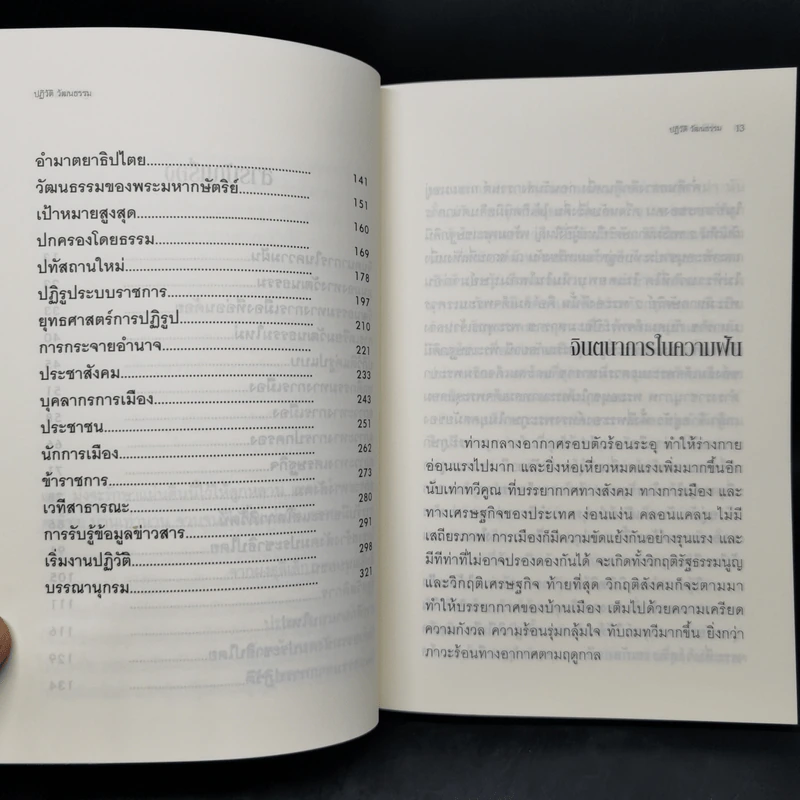 ปฏิวัติ วัฒนธรรม
อำมาตยาธิปไตย 141
วัฒนธรรมของพระมหากษัตริย์ 151
เป้าหมายสูงสุด 160
ปกครองโดยธรรม 169
ปทัสถานใหม่ 178
ปฏิรูประบบราชการ 197
ยุทธศาสตร์การปฏิรูป 210
การกระจายอำนาจ 221
ประชาสังคม 233
บุคลากรการเมือง 243
ประชาชน 251
นักการเมือง 262
ข้าราชการ 273
เวทีสาธารณะ 280
การรับรู้ข้อมูลข่าวสาร 291
เริ่มงานปฏิวัติ 298
บรรณานุกรม 321
ปฏิวัติ วัฒนธรรม 13
จินตนาการในความฝัน
ท่ามกลางอากาศรอบตัวร้อนระอุ ทำให้ร่างกาย
อ่อนแรงไปมาก และยิ่งห่อเหี่ยวหมดแรงเพิ่มมากขึ้นอีก
นับเท่าทวีคูณ ที่บรรยากาศทางสังคม ทางการเมือง และ
ทางเศรษฐกิจของประเทศ ง่อนแง่น คลอนแคลน ไม่มี
เสถียรภาพ การเมืองก็มีความขัดแย้งกันอย่างรุนแรง และ
มีทีท่าที่ไม่อาจปรองดองกันได้ จะเกิดทั้งวิกฤติรัฐธรรมนูญ
และวิกฤติเศรษฐกิจ ท้ายที่สุด วิกฤติสังคมก็จะตามมา
ทำให้บรรยากาศของบ้านเมือง เต็มไปด้วยความเครียด
ความกังวล ความร้อนรุ่มกลุ้มใจ ทับถมทวีมากขึ้น ยิ่งกว่า
ภาวะร้อนทางอากาศตามฤดูกาล